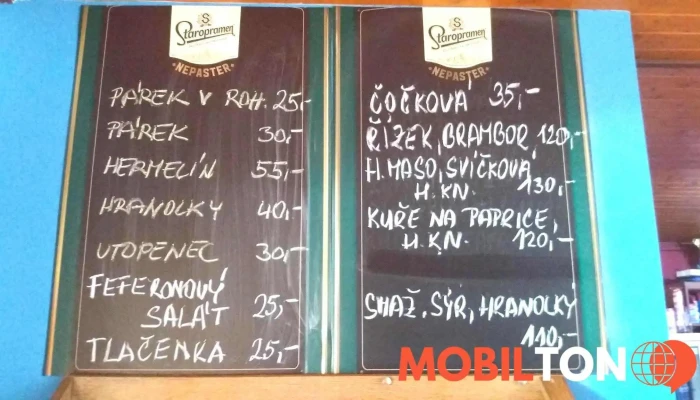 Staropramen
NEPASTER
PÁREK V ROH. 25,-
PÁREK 30,-
HERMELÍN 55,-
HRANOLKY 40,-
UTOPENEC 30,-
FEFERONOVÝ
SALÁT 25,-
TLAČENKA 25,-
Staropramen
NEPASTER
ČOČKOVÁ 35,-
ŘÍZEK, BRAMBOR 120,-
H. MASO, SVÍČKOVÁ,
H. KN. 130,-
KUŘE NA PAPRICE,
H. KN. 120,-
SMAŽ. SÝR, HRANOLKY
110,-
MOBILTON